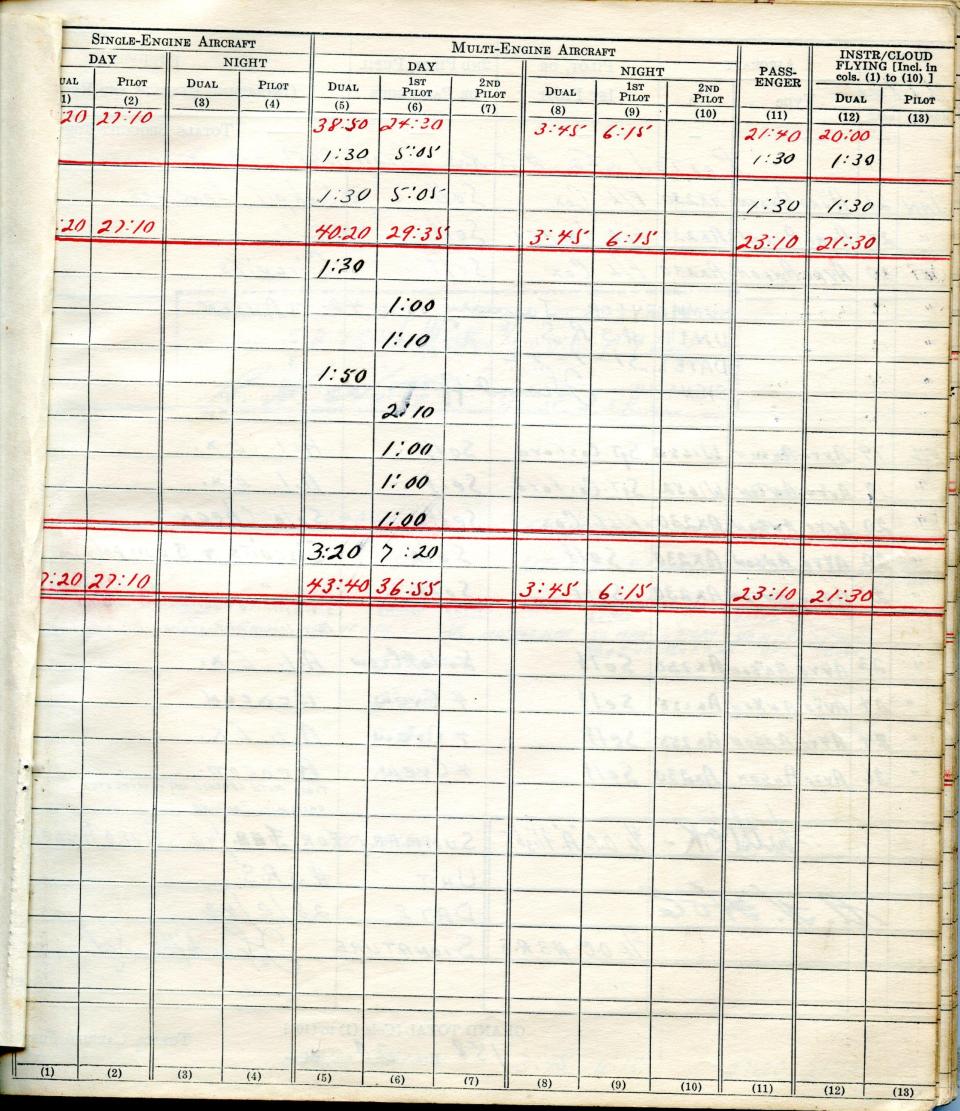 SINGLE-ENGINE AIRCRAFT MULTI-ENGINE AIRCRAFT PASS-ENGER INSTR/CLOUD FLYING [Incl. in cols. (1) to (10) ]
DAY NIGHT DAY NIGHT
UAL PILOT DUAL PILOT DUAL 1ST PILOT 2ND PILOT DUAL 1ST PILOT 2ND PILOT DUAL PILOT
1) (2) (3) (4) (5) (6) (7) (8) (9) (10) (11) (12) (13)
20 27:10 38:50 24:30 3:45 6:15 21:40 20:00
1:30 5:05 1:30 1:30
1:30 5:05 1:30 1:30
:20 27:10 40:20 29:35 3:45 6:15 23:10 21:30
1:30
1:00
1:10
1:50
2:10
1:00
1:00
1:00
3:20 7:20
7:20 27:10 43:40 36:55 3:45 6:15 23:10 21:30
(1) (2) (3) (4) (5) (6) (7) (8) (9) (10) (11) (12) (13)